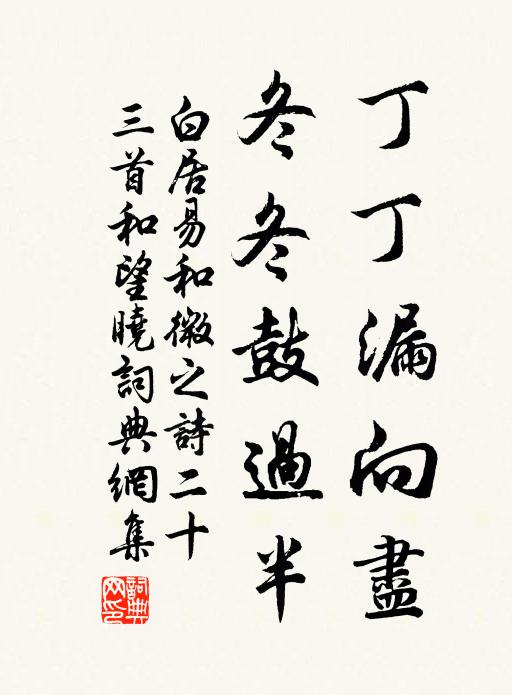 丁丁漏向盡
冬冬鼓過半
白居易和微之詩二十
三首和望曉詞典網集
詞典網印